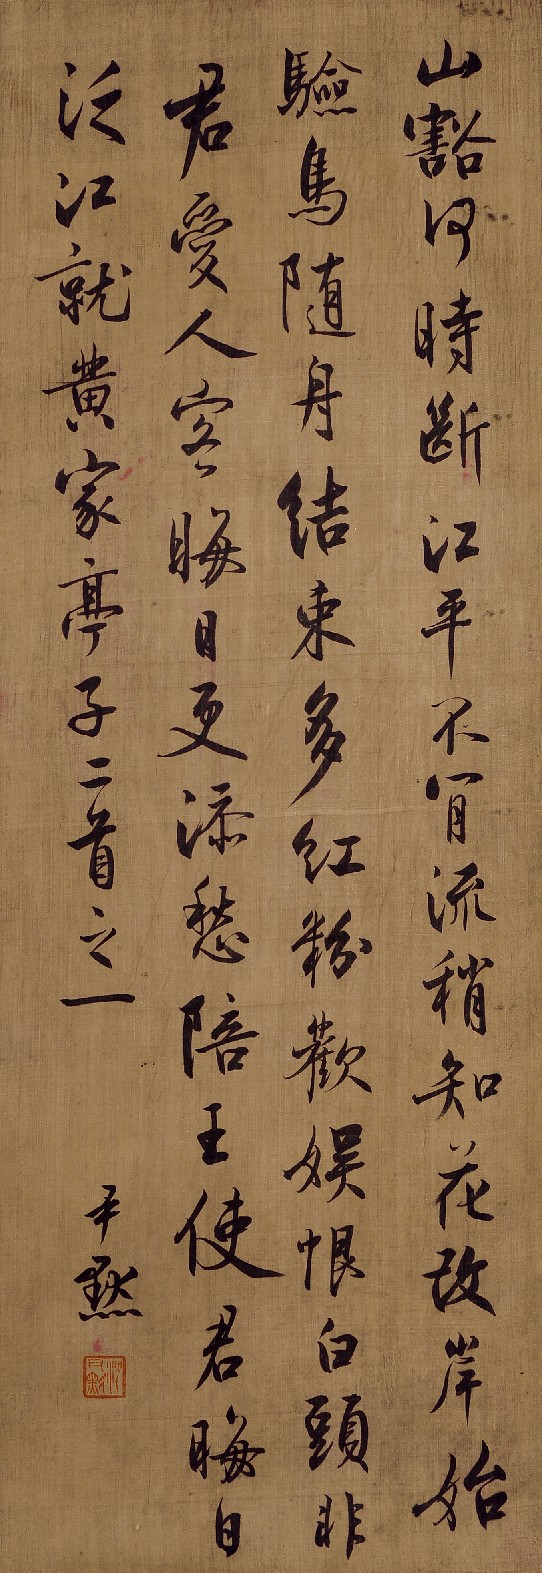 山豁何時斷江平不肯流稍知花改岸始
驗鳥随舟結束多紅粉歡娱恨白頭非
君愛人客晦日更添愁陪王使君晦日
泛江就黄家亭子二首之一
尹默